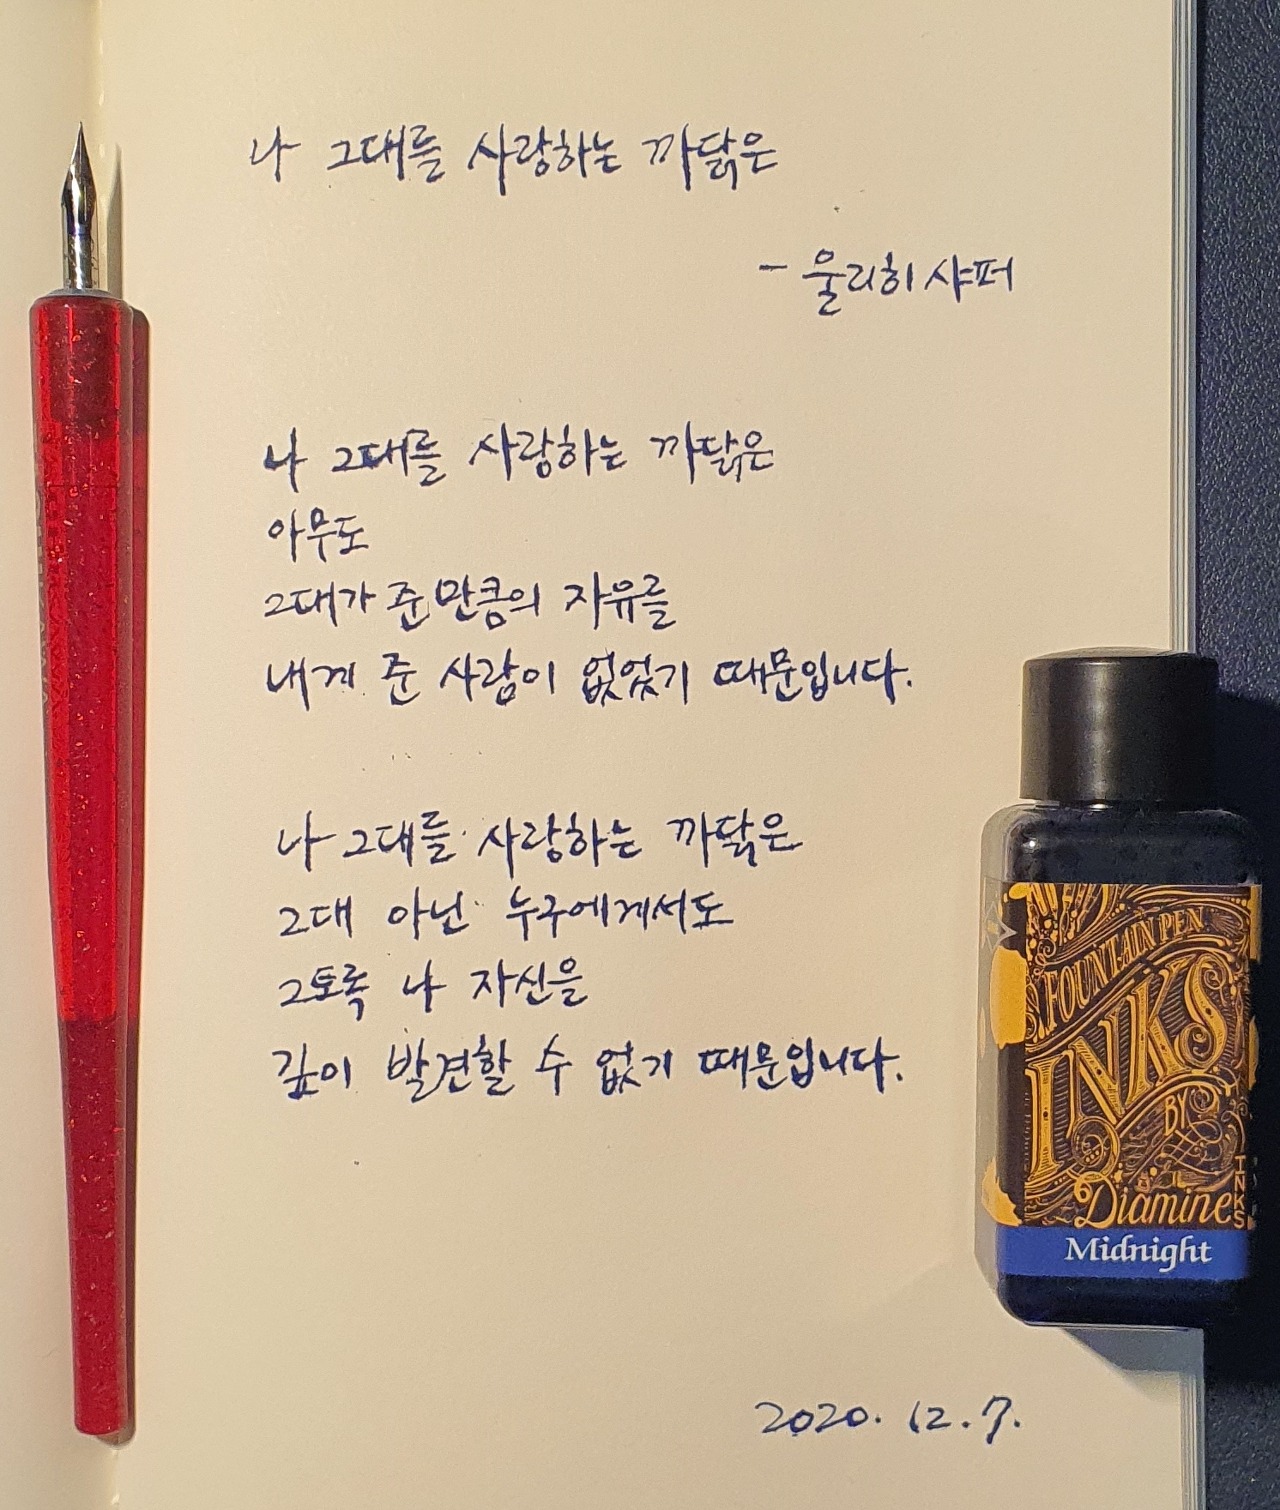 나 그대를 사랑하는 까닭은
- 울리히 샤퍼
나 그대를 사랑하는 까닭은
아무도
그대가 준 만큼의 자유를
내게 준 사람이 없었기 때문입니다.
나 그대를 사랑하는 까닭은
그대 아닌 누구에게서도
그토록 나 자신을
깊이 발견할 수 없기 때문입니다.
2020. 12. 7.
FOUNTAIN PEN
INKS
BY
Diamine
INKS
Midnight